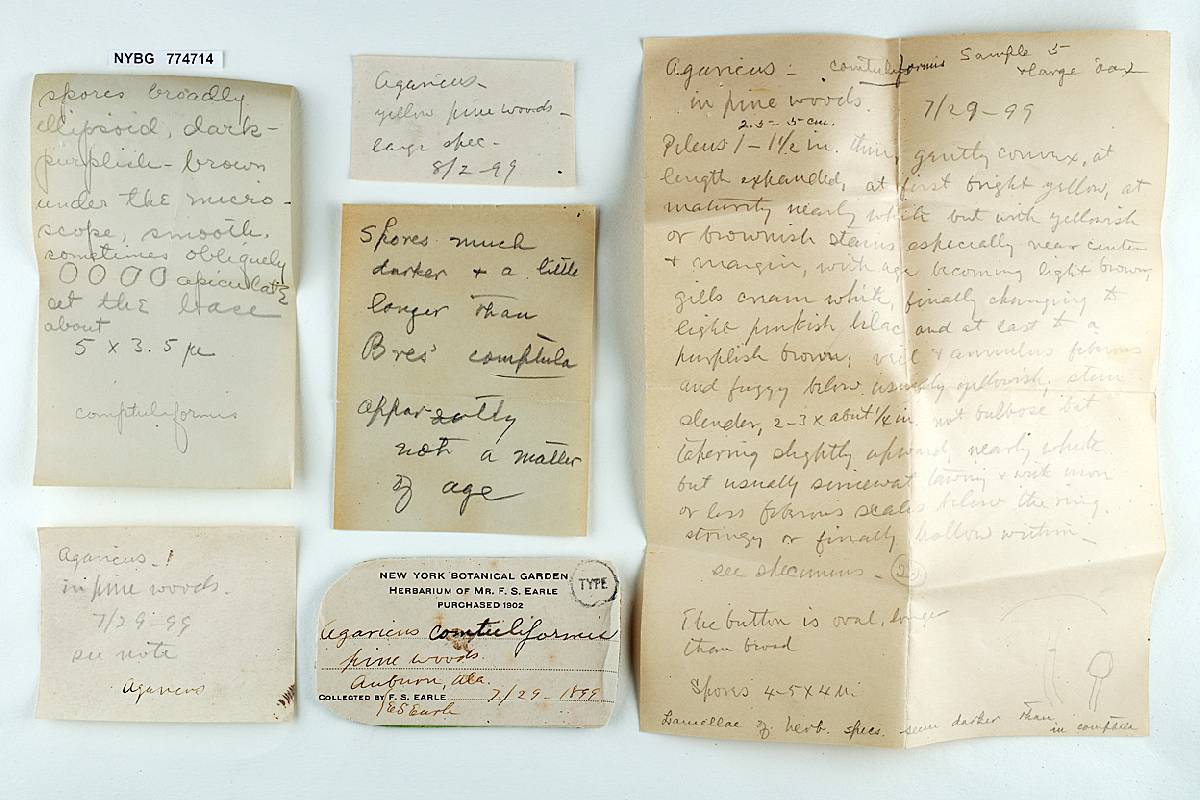 NYBG 774714
spores broadly
ellipsoid, dark-
purplish-brown
under the micro-
scope, smooth.
sometimes obliquely
apiculate
at the base
about
5 x 3.5 µ
comptuliformis
Agaricus-
yellow pine woods-
large spec-
8/2-99
Spores much
darker + a little
longer than
Bres' comptula
apparently
not a matter
of age
Agaricus-1
in pine woods.
7/29-99
see note
Agaricus
NEW YORK BOTANICAL GARDEN
HERBARIUM OF MR. F. S. EARLE
PURCHASED 1902
TYPE
Agaricus comtuliformis
pine woods.
Auburn, Ala.
COLLECTED BY F. S. EARLE 7/29-1899
FS Earle
Agaricus- comtuliformis Sample 5
+ large
in pine woods. 7/29-99
2.5-5 cm.
Pileus 1-1½ in. thin, gently convex, at
length expanded, at first bright yellow, at
maturity nearly white but with yellowish
or brownish stains especially near center
+ margin, with age becoming light brown,
gills cream white, finally changing to
light pinkish lilac and at last to a
purplish brown; veil + annulus fibrous
and fuzzy below usually yellowish, stem
slender, 2-3 x about ¼ in. not bulbose but
tapering slightly upward, nearly white
but usually simewat tawny + with more
or less fibrous scales below the ring.
stringy or finally hollow within-
see specimens-
The button is oval, longer
than broad
Spores 4-5x4 µ.
Lamellae of herb. specs. seem darker than
in comptula